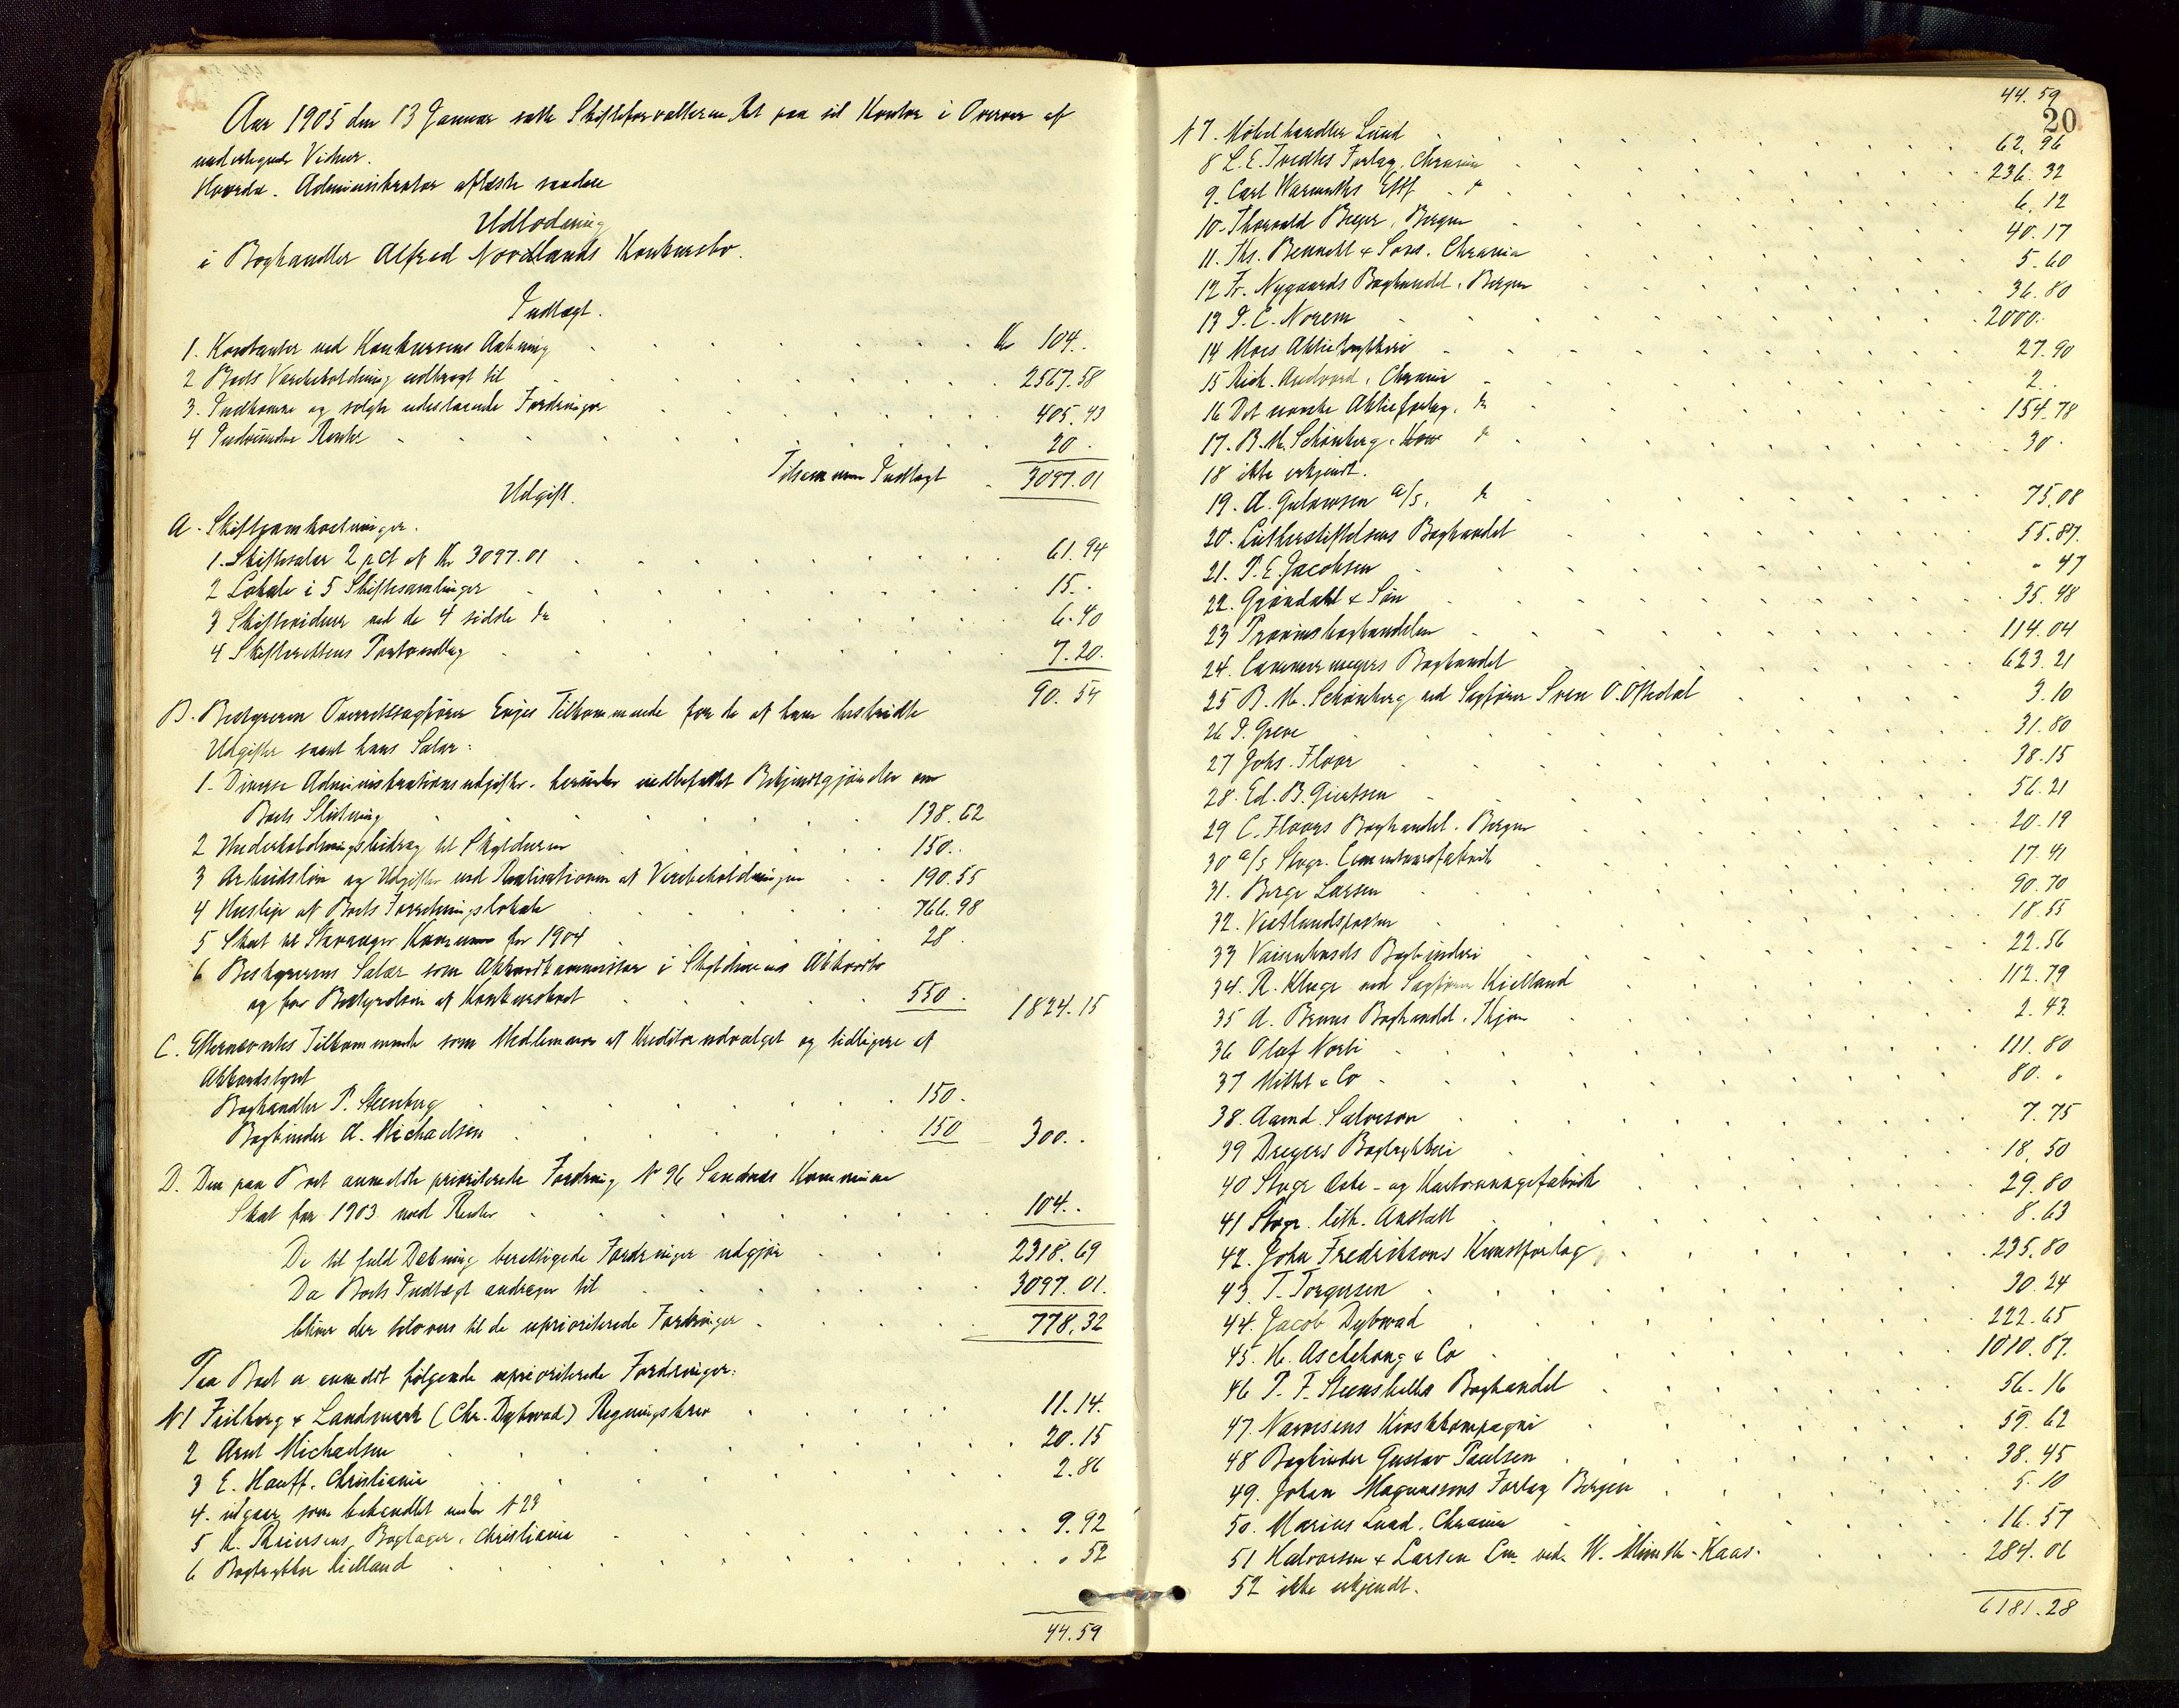 Aar 1905 den 13 Januar satte Skifteforvalteren Ret paa sit Kontor i Overvær af
undertegnede Vidner.
Hvorda. Administrator aflæste saadan
Udlodning
i Boghandler Alfred Nordlands Konkursbo.
Indtægt.
1. Kontanter ved Konkursens Aabning Kr 104..
2 Boets Varebeholdning udbragt til 2567.58
3. Indkomne og solgte udestaaende Fordringer 405.43
4 Indvundne Renter 20.
Tilsammen Indtægt 3097.01
Udgift.
A. Skifteomkostninger.
1. Skiftesalær 2 pCt af Kr 3097.01 61.94
2 Lokale i 5 Skiftesamlinger 15..
3 Skiftevidner ved de 4 sidste do 6.40
4 Skifterettens Portoudlæg 7.20.
90.54
B. Bestyreren Overretssagfører Enjes Tilkommende for de af ham bestridte
Udgifter samt hans Salær:
1. Diverse Administrationsudgifter, herunder indbefattet Bekjendtgjørelse om
Boets Slutning 138.62
2 Underholdningsbidrag til Skyldneren 150..
3 Arbeidsløn og Udgifter ved Realisationen af Varebeholdningen 190.55
4 Husleje af Boets Forretningslokale 766.98
5 Skat til Stavanger Kommune for 1904 28.
6 Bestyrerens Salær som Akkordkommissær i Skyldnerens Akkordbo
og for Bestyrelsen af Konkursboet 550. 1824.15
C. Efternævntes Tilkommende som Medlemmer af Kreditorudvalget og tidligere af
Akkordstyret
Boghandler P. Steenberg 150.
Bogbinder A. Michaelsen 150 300..
D. Den paa Boet anmeldte prioriterede Fordring No 96 Sandnes Kommune
Skat for 1903 med Renter 104..
De til fuld Dækning berettigede Fordringer udgjør 2318.69
Da Boets Indtægt andrager til 3097.01.
bliver der tilovers til de uprioriterede Fordringer 778.32
Paa Boet er anmeldt følgende uprioriterede Fordringer:
N 1 Feilberg & Landmark (Chr. Dybwad) Regningskrav 11.14.
2 Arnt Michaelsen 20.15
3 E. Hauff. Christiania 2.86
4. udgaar som behandlet under N 23
5 K. Reiersens Boglager, Christiania 9.92
6 Bogtrykker Kielland " 52
44.59
44.59
20
N 7. Møbelhandler Lund 62.96
8 L. E. Tvedtes Forlag, Chrania 236.32
9. Carl Warmuths Eftf. do 6.12
10. Thorvald Beyer, Bergen 40.17
11. Ths. Bennett & Sons. Chrania 5.60
12 Fr. Nygaards Boghandel, Bergen 36.80
13 P. C. Norem 2000.
14 Moss Aktiebogtrykkeri 27.90
15 Rich. Andvord, Chrania 2..
16 Det norske Aktieforlag, do 154.78
17. B. M. Schønberg. do 30.
18 ikke erkjendt.
19. A. Gulowsen a/s, do 75.08
20. Lutherstiftelsens Boghandel 55.87.
21. P. E. Jacobsen " 47
22. Grøndahl & Søn 35.48
23 Provinsboghandelen 114.04
24. Cammermeyers Boghandel 623.21
25 B. M. Schønberg ved Sagfører Sven O. Oftedal 3.10
26 P. Greve 31.80
27 Johs. Floor 38.15
28. Ed. B. Giertsen 56.21
29 C. Floors Boghandel. Bergen 20.19
30 a/s Stvgr. Cementvarefabrik 17.41
31. Berge Larsen 90.70
32. Vestlandsposten 18.55
33 Vaisenhusets Bogbinderi 22.56
34. R. Kluge ved Sagfører Kielland 112.79
35 A. Bruns Boghandel. Thjem 2.43
36 Olaf Norli 111.80
37 Mittet & Co 80. "
38. Aamd. Salveson 7.75
39 Dreyers Bogtrykkeri 18.50
40 Stvgr Æske- og Kartonnagefabrik 29.80
41 Stvgr. lith. Anstalt 8.63
42. John Fredriksons Kunstforlag 235.80
43. T. Torgersen 30.24
44. Jacob Dybwad 222.65
45. H. Aschehoug & Co 1010.87.
46 P. F. Steensballes Boghandel 56.16
47. Narvesens Kioskkompagni 59.62
48 Bogbinder Gustav Paulsen 38.45
49. Johan Magnussons Forlag Bergen 5.10
50. Marius Lund. Chrania 16.57
51 Halvorsen & Larsen Lm. ved W. Münster-Kaas. 284.06
52 ikke erkjendt.
6181.28